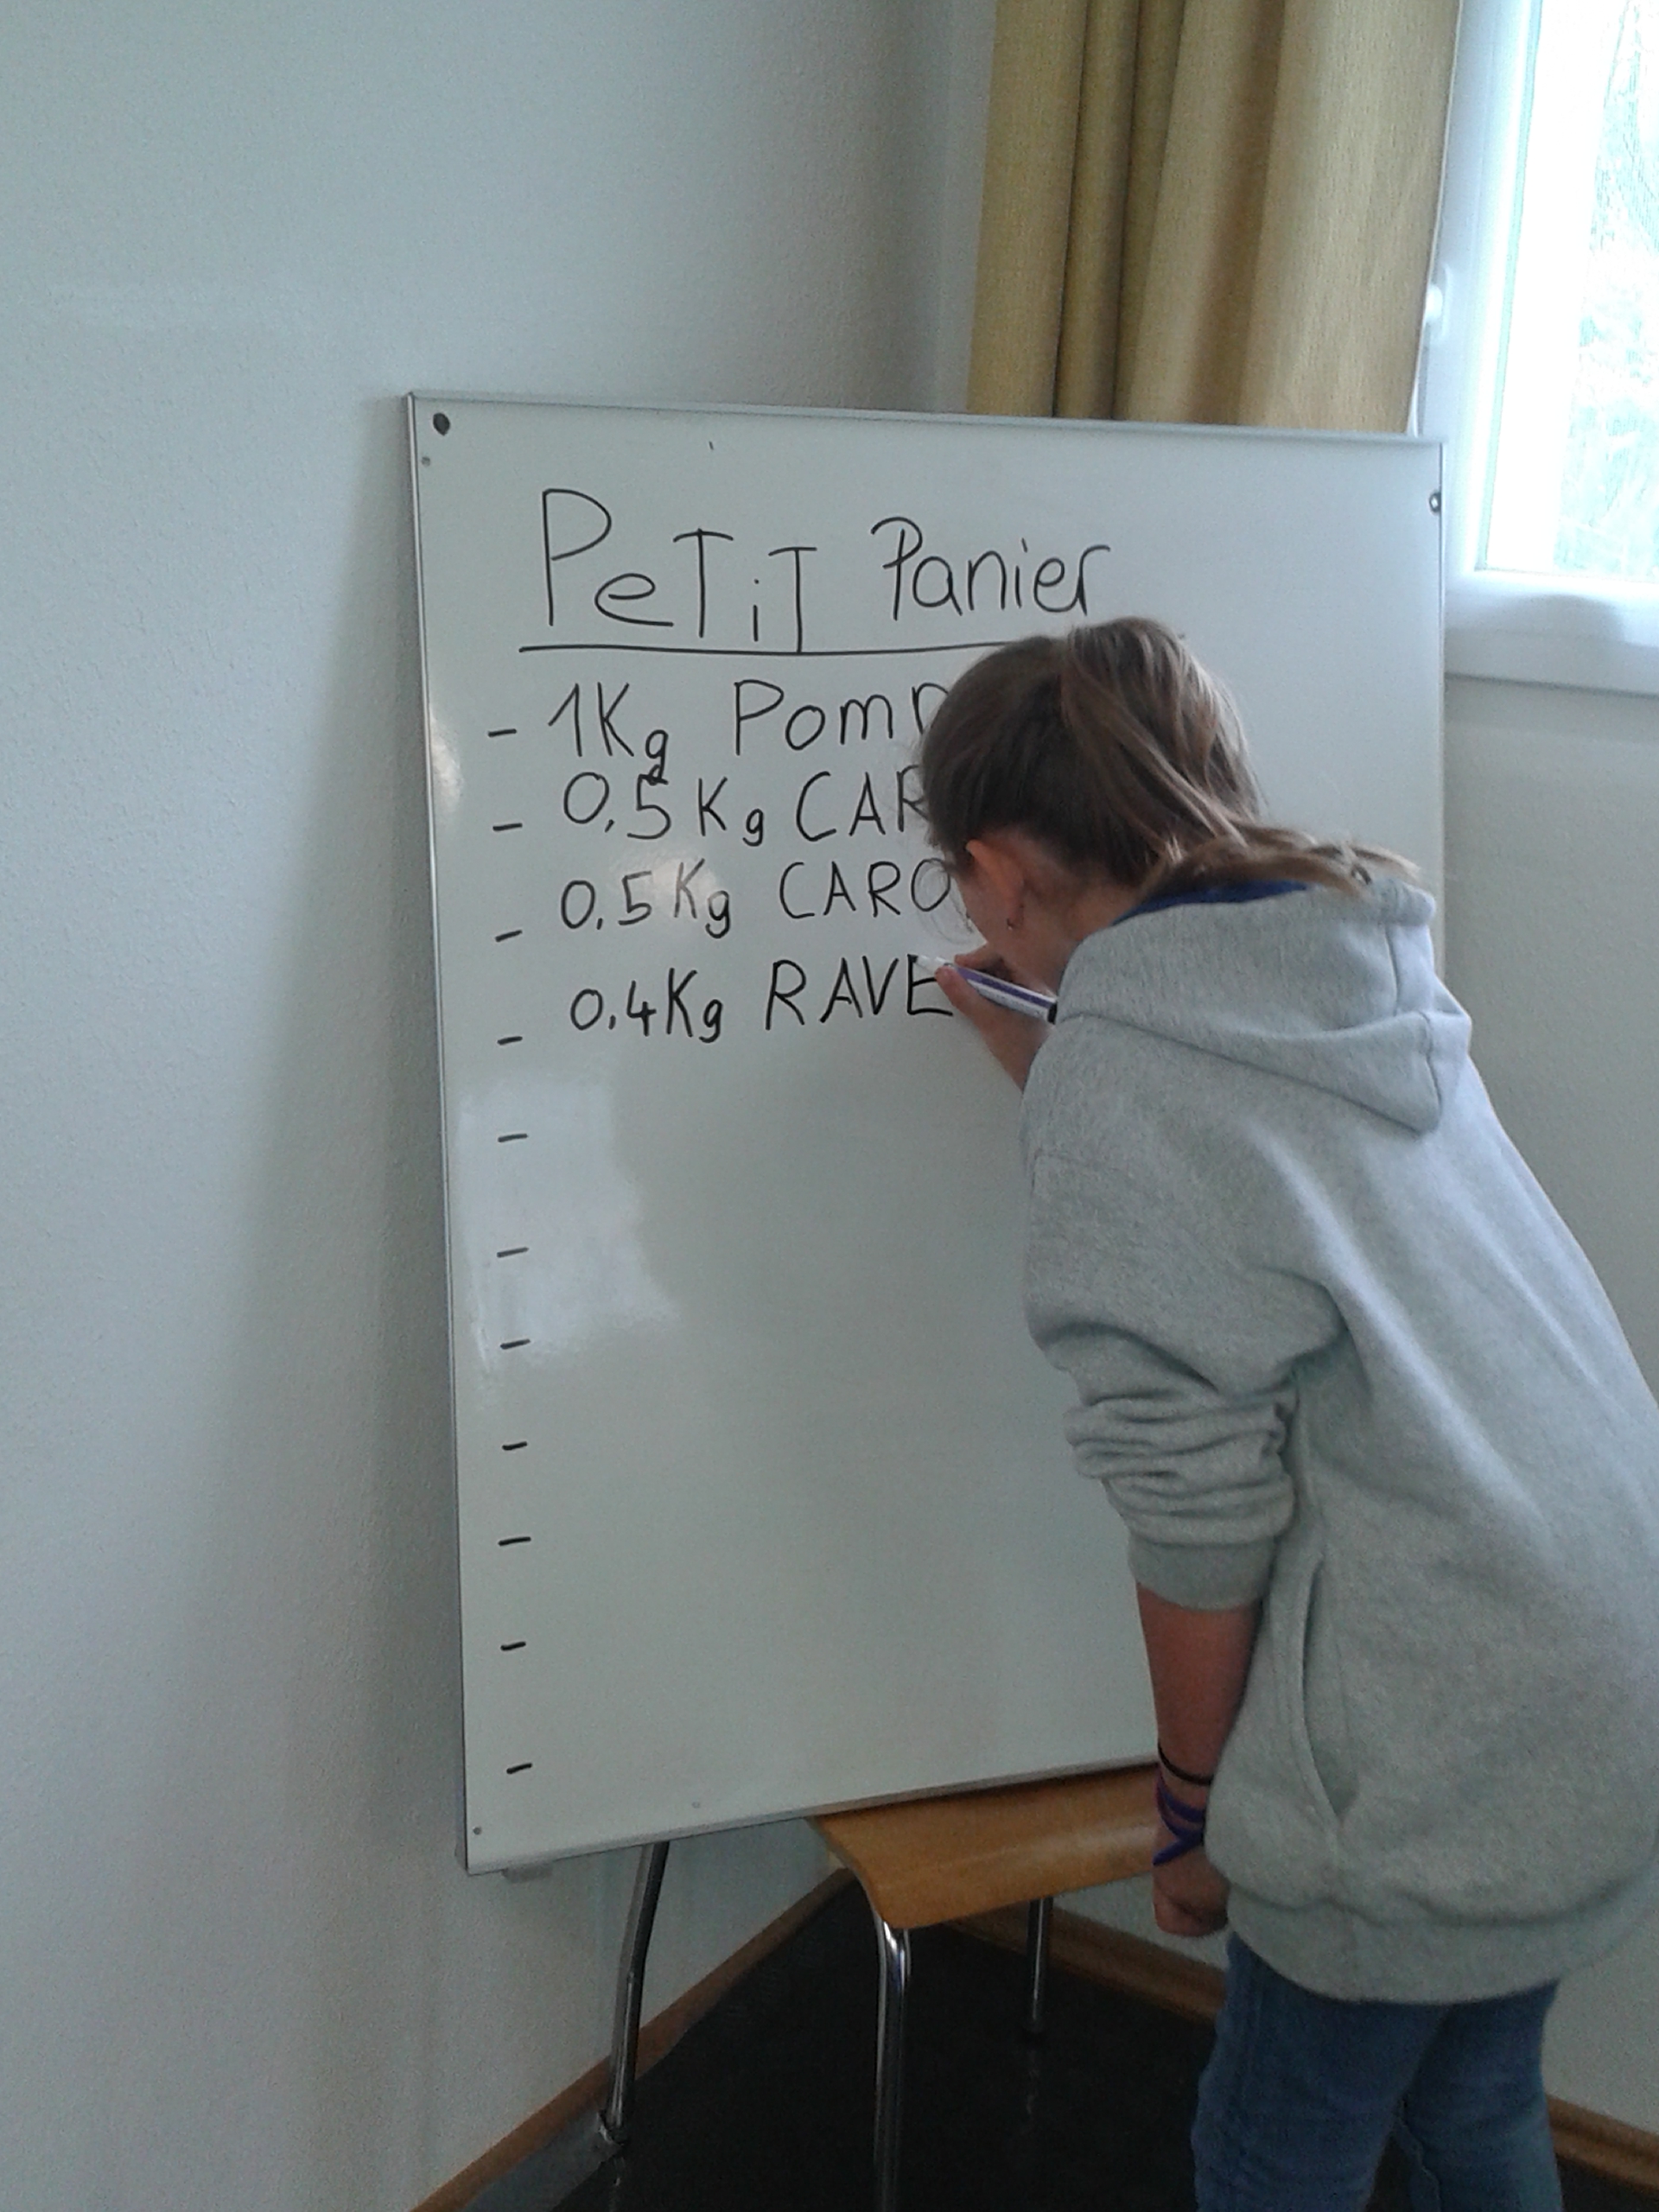 PeTiT Panier
- 1Kg Pom
- 0.5Kg CAR
- 0.5Kg CARO
- 0.4Kg RAVE
-
-
-
-
-
-
-